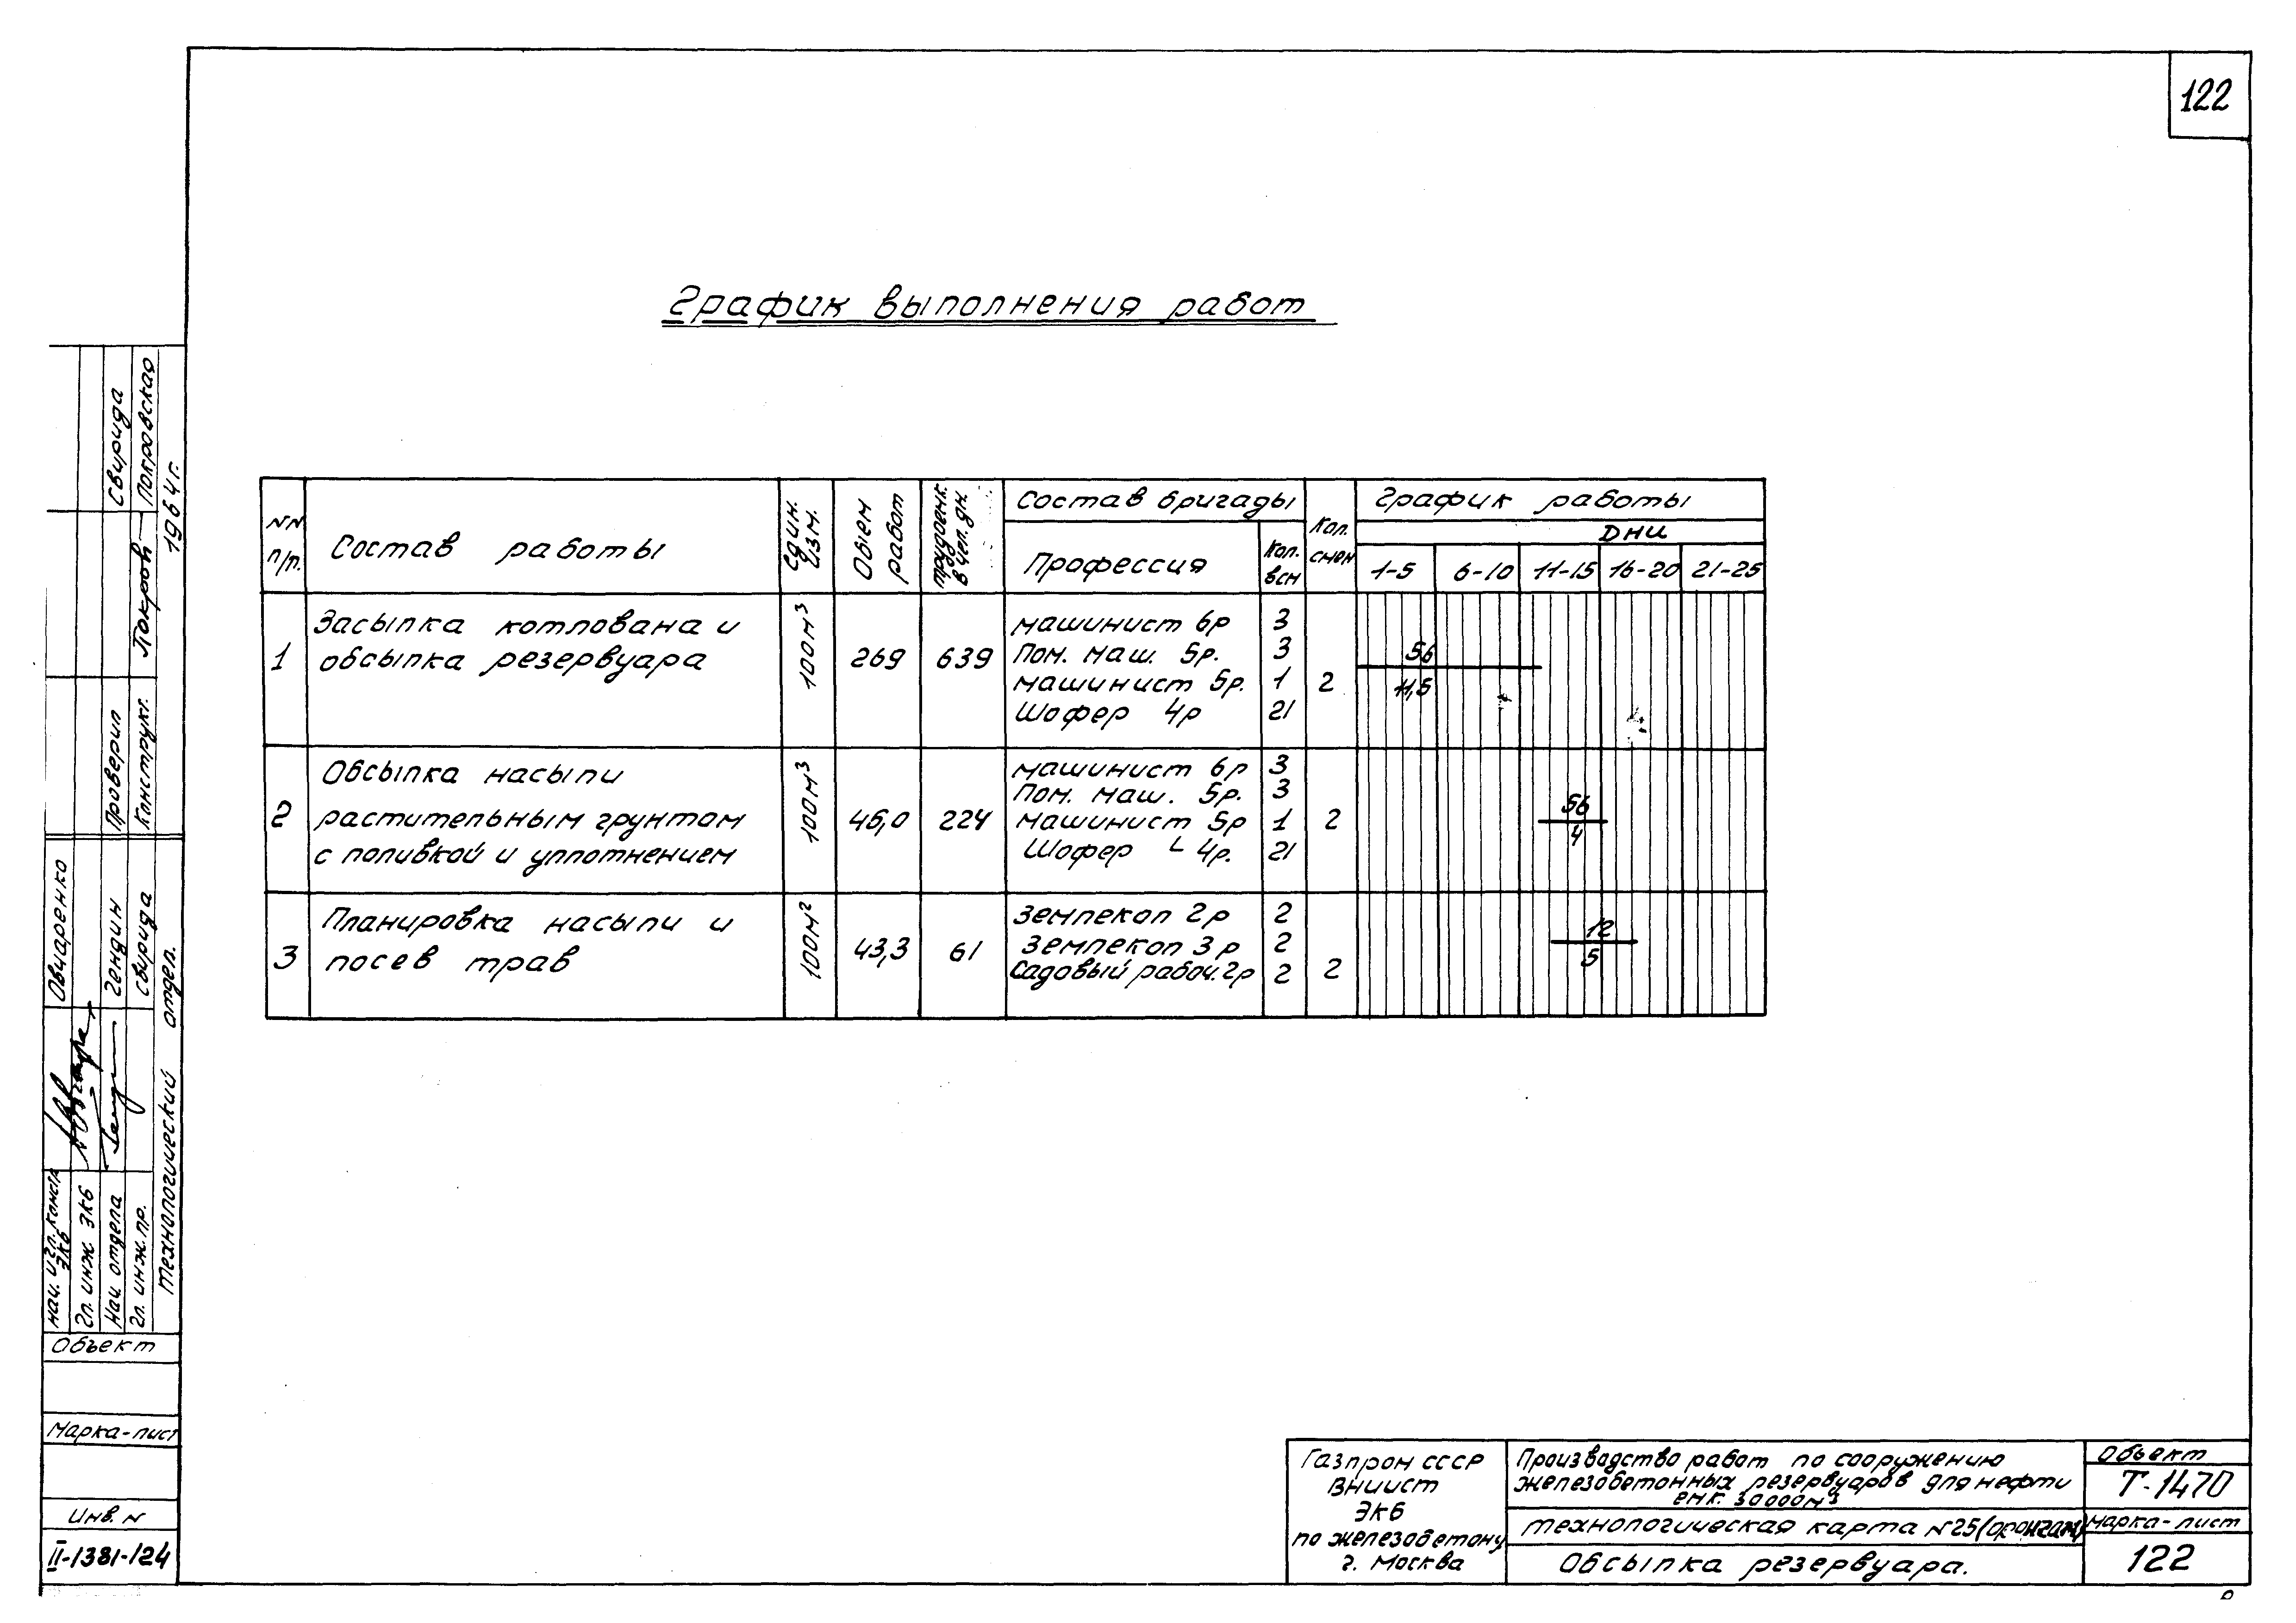 122
График выполнения работ
NN п/п.
Состав работы
Един. изм.
Объем работ
трудоемк. в чел. дн.
Состав бригады
Профессия
Кол. в см
Кол. смен
График работы
Дни
1-5 6-10 11-15 16-20 21-25
1
Засыпка котлована и
обсыпка резервуара
100м³
269
639
машинист 6р 3
Пом. маш. 5р. 3
машинист 5р. 1
Шофер 4р 21
2
56
11,5
2
Обсыпка насыпи
растительным грунтом
с поливкой и уплотнением
100м³
46,0
224
машинист 6р 3
Пом. маш. 5р. 3
машинист 5р 1
Шофер 4р. 21
2
56
4
3
Планировка насыпи и
посев трав
100м²
43,3
61
Землекоп 2р 2
Землекоп 3р 2
Садовый рабоч. 2р 2
2
12
5
Свирида
Покровская
1964г.
Покров
Проверил
Конструкт.
Овчаренко
Гендин
Свирида
Технологический отдел.
нач. и гл. констр ЭКБ
Гл. инж. ЭКБ
Нач отдела
Гл. инж. пр.
Объект
Марка-лист
Инв. N
II-1381-124
Газпром СССР
ВНИИСТ
ЭКБ
по железобетону
г. Москва
Производство работ по сооружению
железобетонных резервуаров для нефти
емк. 30000м³
технологическая карта N25
Обсыпка резервуара.
Объект
Т-1470
марка-лист
122